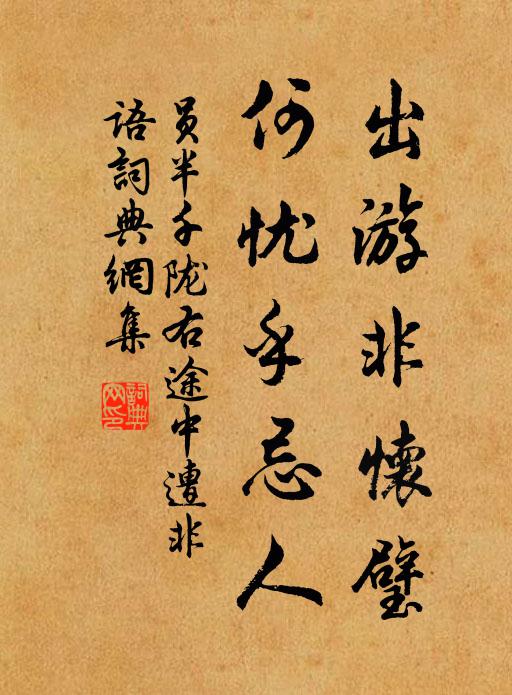 出游非懷璧
何忧乎忌人
员半千陇右途中遭非
语詞典網集
詞典网印